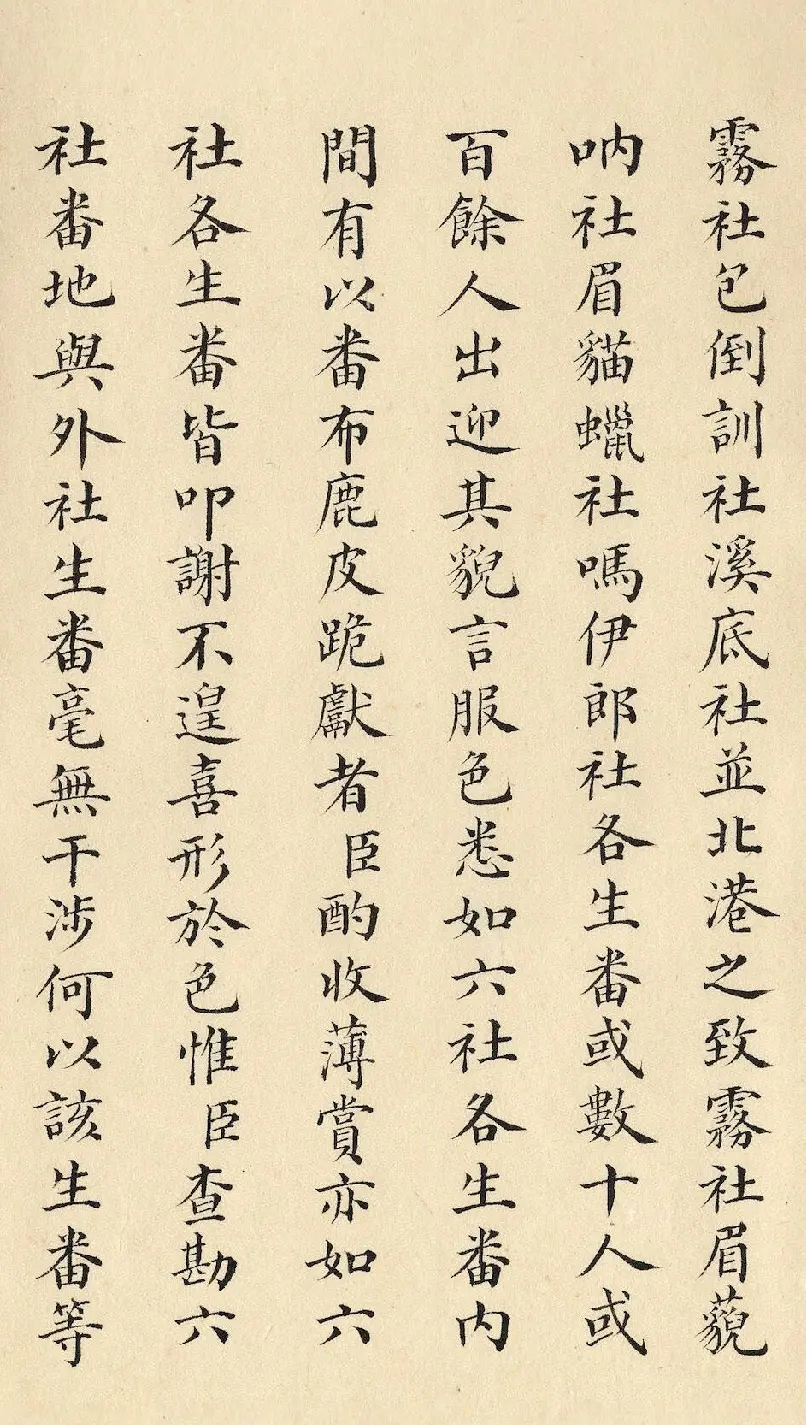 霧社包倒訓社溪底社並北港之致霧社眉藐
吶社眉貓蠟社嗎伊郎社各生番或數十人或
百餘人出迎其貌言服色悉如六社各生番內
間有以番布鹿皮跪獻者臣酌收薄賞亦如六
社各生番皆叩謝不遑喜形於色惟臣查勘六
社番地與外社生番毫無干涉何以該生番等